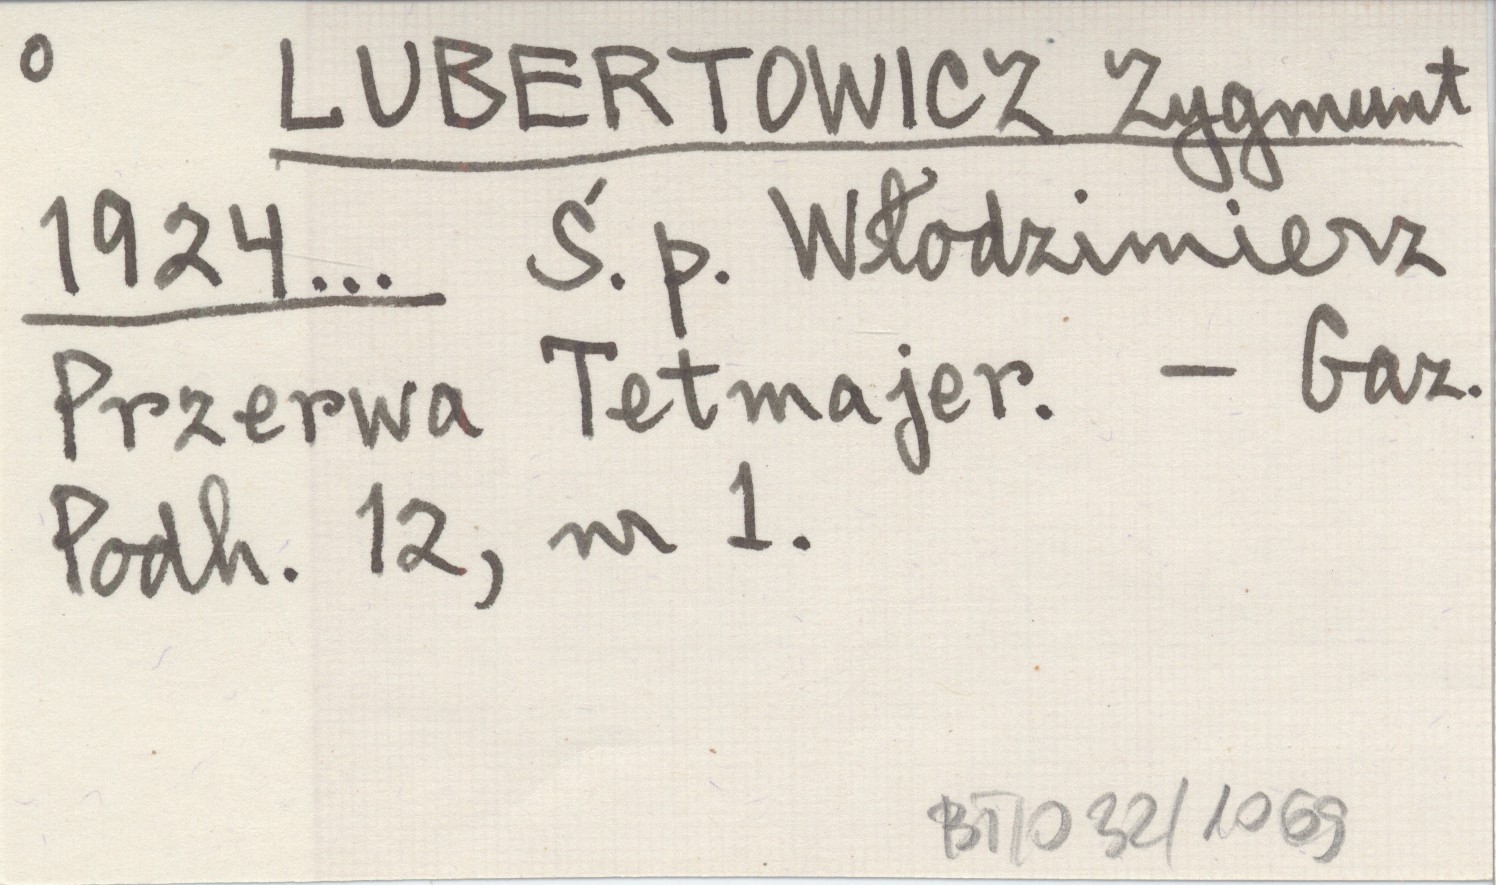 o LUBERTOWICZ Zygmunt
1924... Ś. p. Włodzimierz
Przerwa Tetmajer. – Gaz.
Podh. 12, nr 1.
BT/O 32/1069